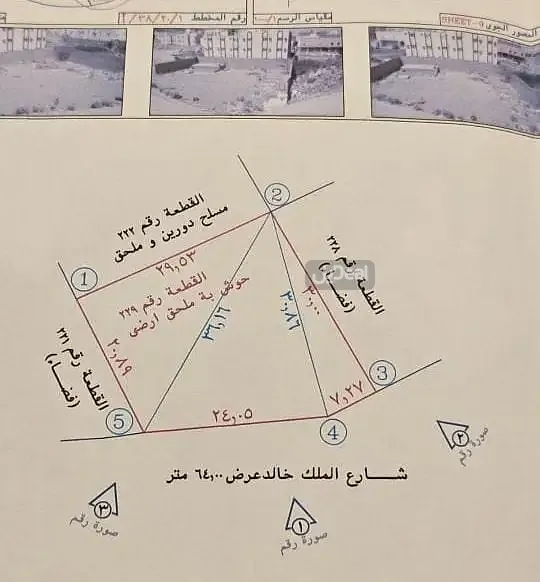 المصور الجوى SHEET-9
مقياس الرسم ١/١٠٠٠
رقم المخطط ١/٢٠/٣٨/ت
1
2
القطعة رقم ٢٢٢
مسلح دورين و ملحق
٢٩,٥٣
القطعة رقم ٢٢٩
حوش بة ملحق ارضى
القطعة رقم ٢٢٨
(فضاء)
٣٠,٠٠
٣٠,٨٦
٣٦,١٦
القطعة رقم ٢٢١
(فضــــاء)
٢٠,٨٩
5
٢٤,٠٥
4
٧,٢٧
3
شـــــارع الملك خالدعرض ٦٤,٠٠ متر
٢
صورة رقم
٣
صورة رقم
١
صورة رقم
Deal